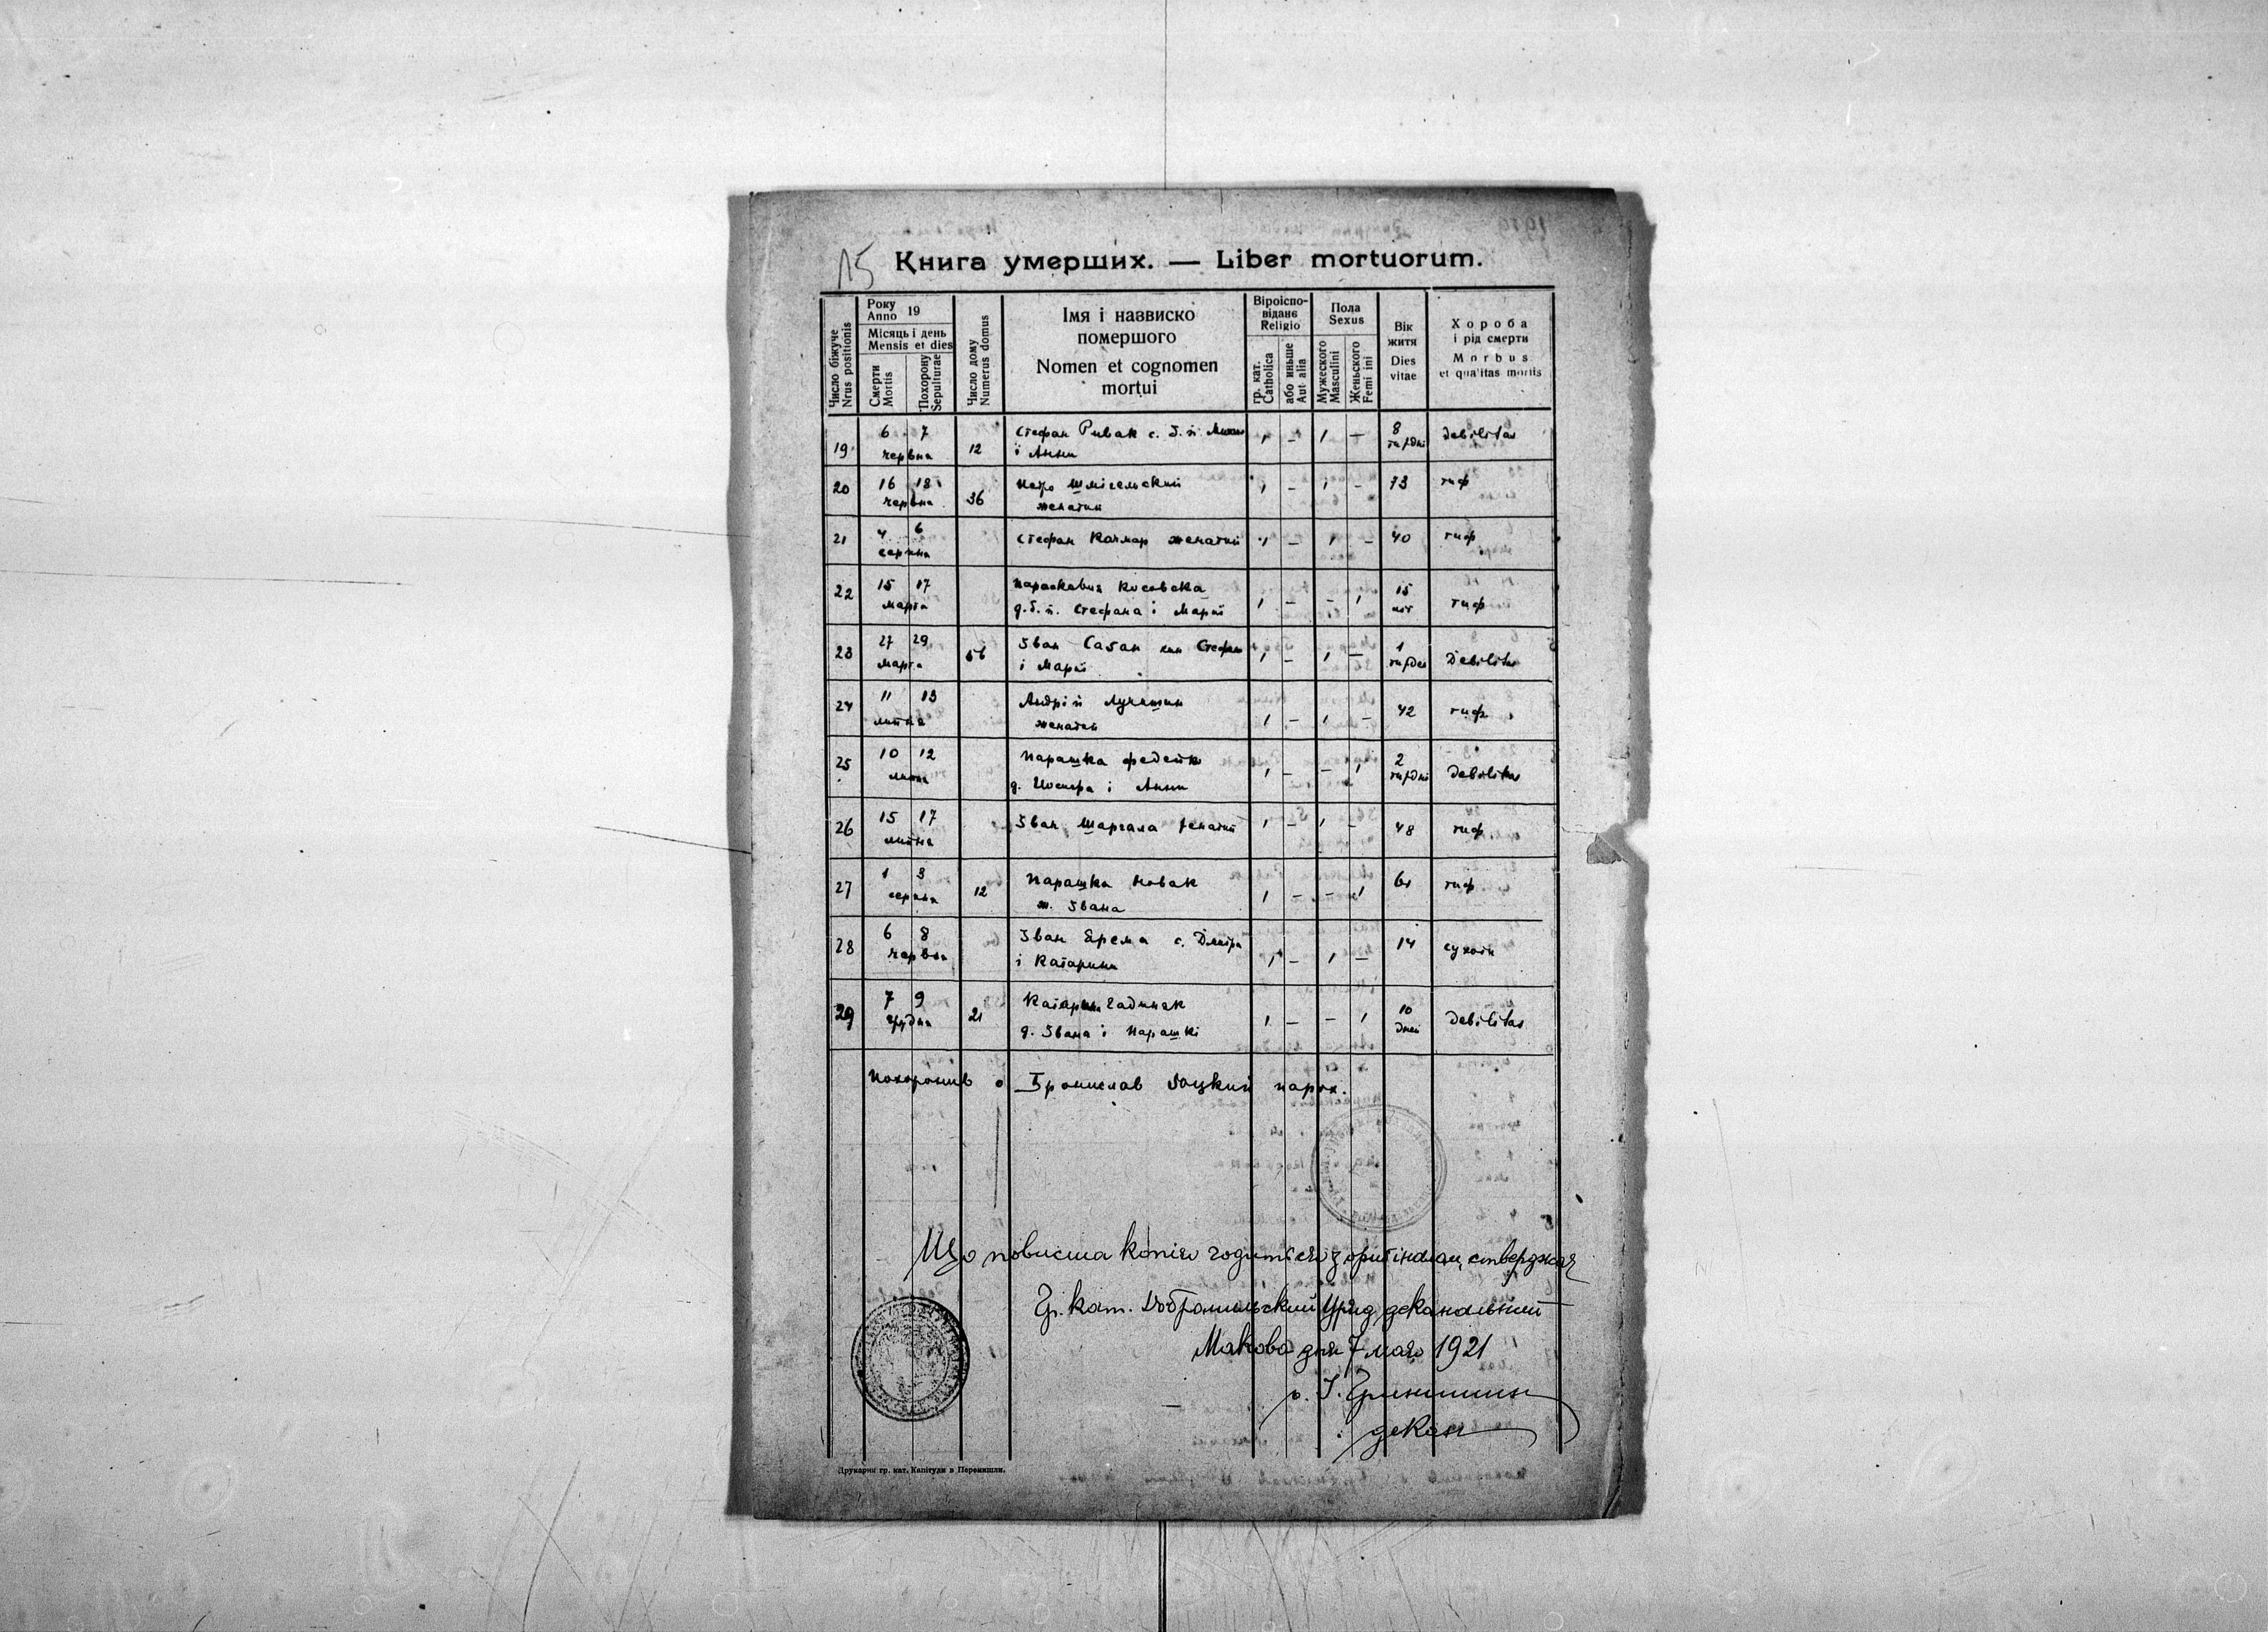 15
Книга умерших. — Liber mortuorum.
Число біжуче
Nrus positionis
Року
Anno 19
Місяць і день
Mensis et dies
Смерти
Mortis
Похорону
Sepulturae
Число дому
Numerus domus
Імя і назвиско
помершого
Nomen et cognomen
mortui
Віроіспо-
віданє
Religio
гр. кат.
Catholica
або иньше
Aut alia
Пола
Sexus
Мужеского
Masculini
Женьского
Femi ini
Вік
житя
Dies
vitae
Хороба
і рід смерти
Morbus
et qua'itas mortis
19 6 7 червня 12 Стефан с. І. й
і Анни 1 — 1 — 8 Debilitas
20 16 18 червня 36 Петро Шмігельский
женатий 1 — 1 — 73 тиф
21 4 6 серпня Стефан Качмар женатий 1 — 1 — 40 тиф
22 15 17 марта Параскавия Косовска
Стефана і Мариї 1 — — 1 15 літ тиф
23 27 29 марта 56 Іван Сабан син Стефана
і Мариї 1 — 1 — 1 Debilitas
24 11 13 липня Андрій Лучишин
женатий 1 — 1 — 42 тиф
25 10 12 липня Парашка Федейко
д. Йосифа і Анни 1 — — 1 2 Debilitas
26 15 17 липня Іван Шаргала женатий 1 — 1 — 48 тиф
27 1 3 серпня 12 Парашка Новак
ж. Івана 1 — — 1 тиф
28 6 8 червня Іван Ярема с. Дмитра
і Катарини 1 — 1 — 14 сухоти
29 7 9 грудня 21 Катарина Гадиняк
д. Івана і Парашкі 1 — — 1 10 дней Debilitas
Похоронив о Броніслав Боцкий парох.
Що повисша копія годит ся з оригіналом, стверджая
Гр. кат. Добромильский Уряд деканальний
Макова дня 7 мая 1921
о. І. Гринишин
декан
Друкарня гр. кат. Капітули в Перемишли.